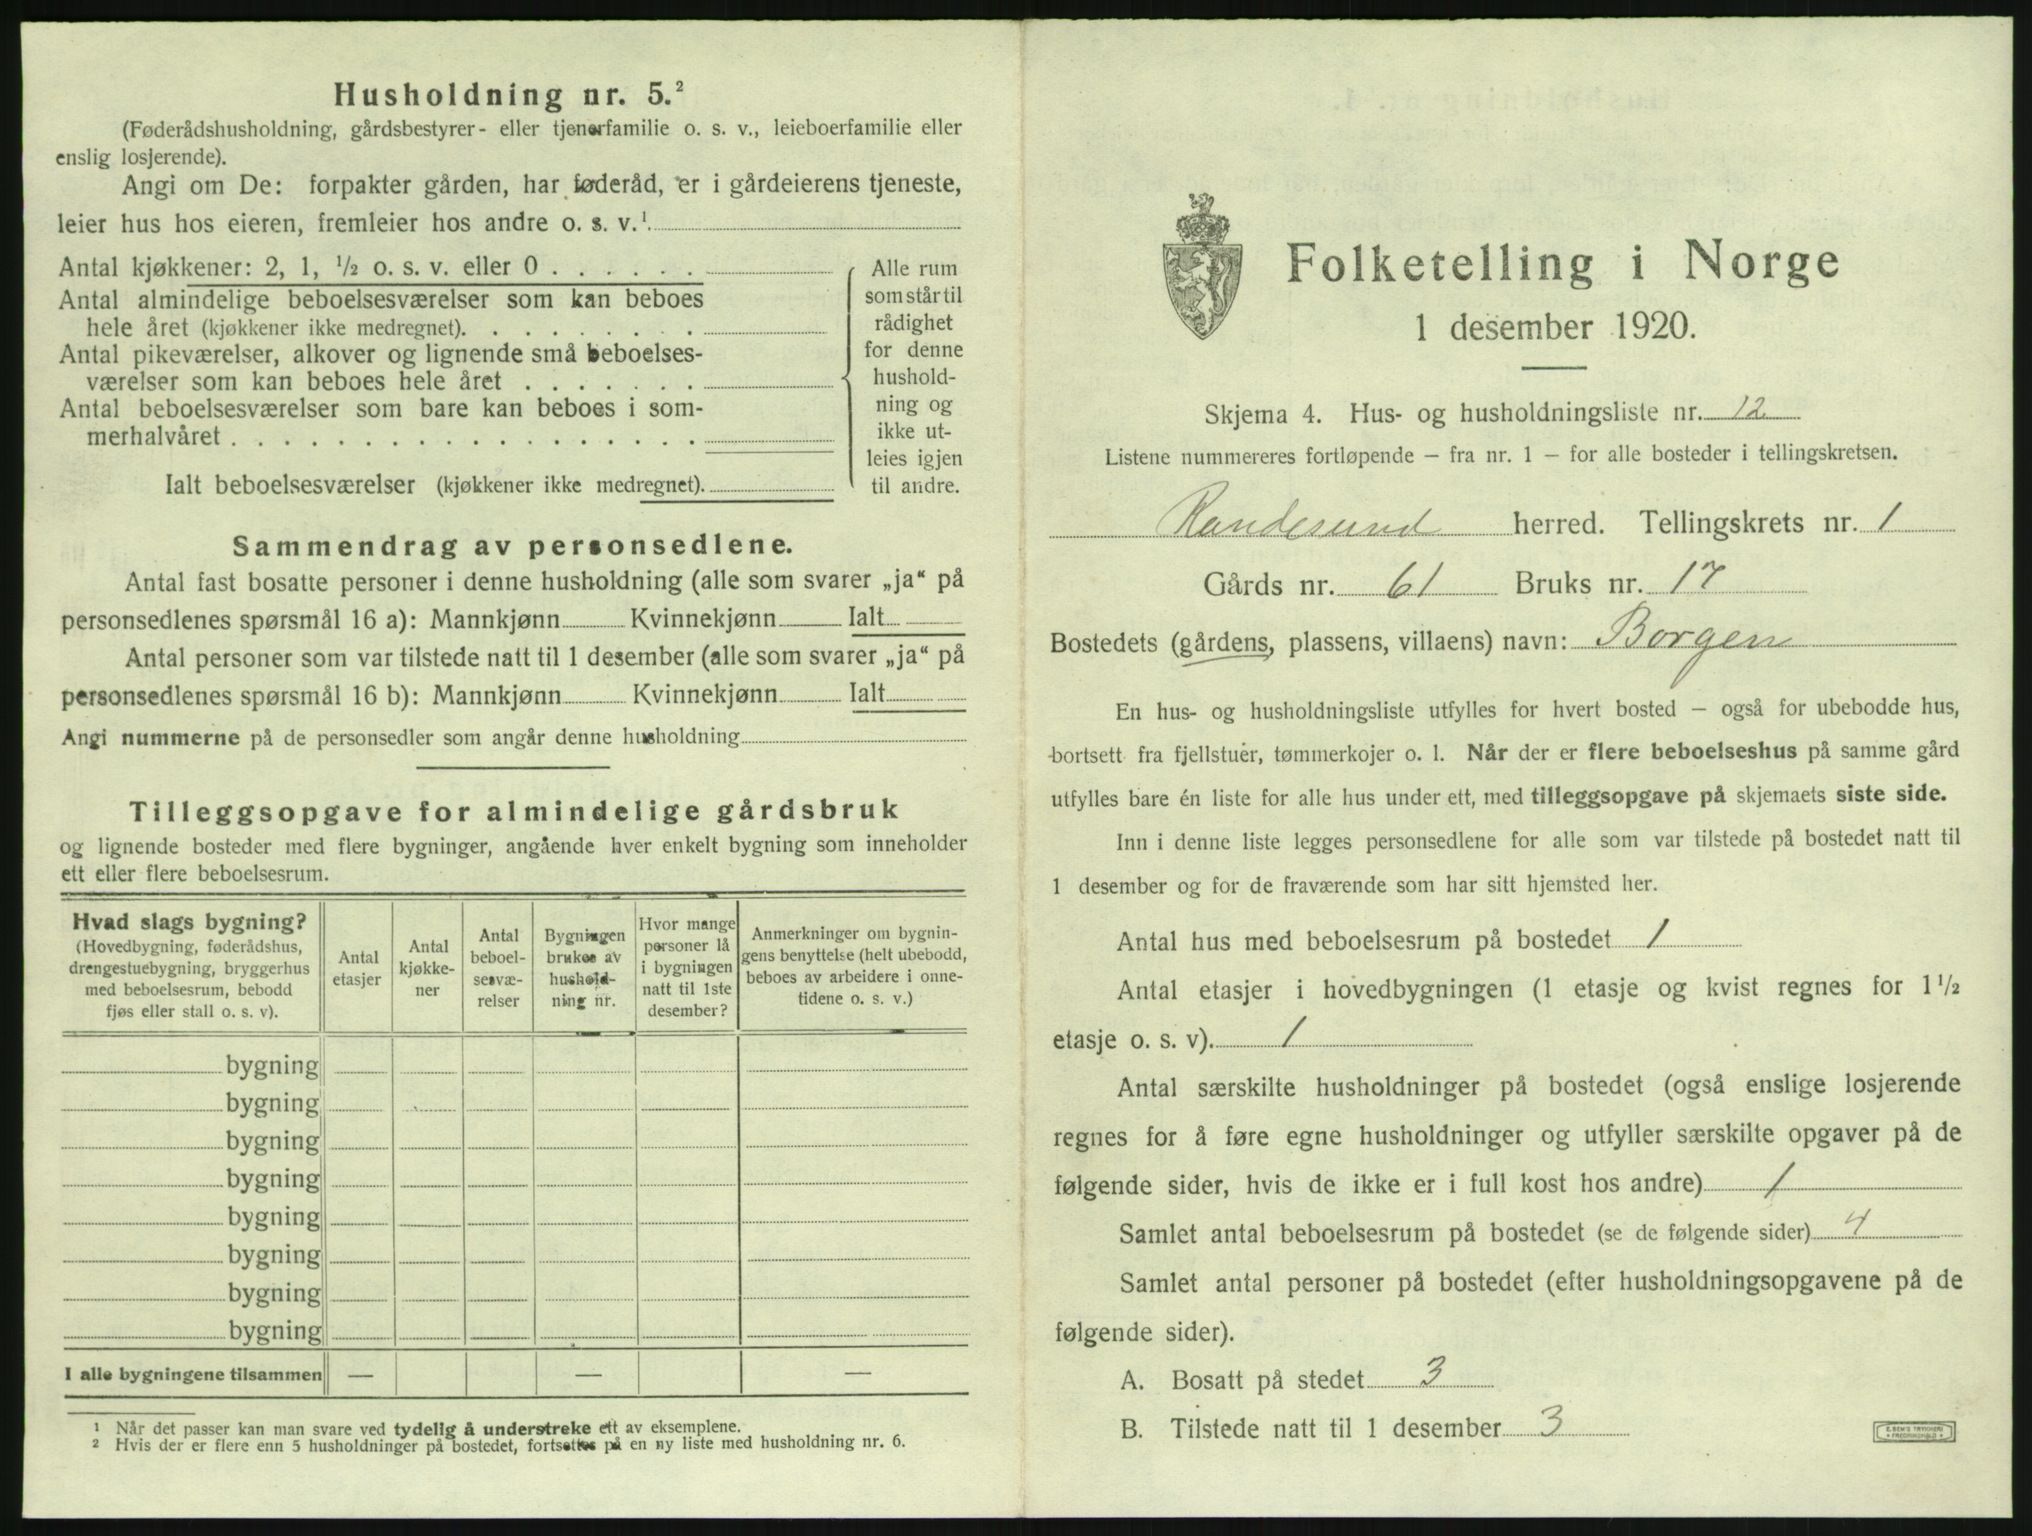 Husholdning nr. 5.²
(Føderådshusholdning, gårdsbestyrer- eller tjenerfamilie o. s. v., leieboerfamilie eller
enslig losjerende).
Angi om De: forpakter gården, har føderåd, er i gårdeierens tjeneste,
leier hus hos eieren, fremleier hos andre o. s. v.¹
Antal kjøkkener: 2, 1, ½ o. s. v. eller 0 . . . . . .
Antal almindelige beboelsesværelser som kan beboes
hele året (kjøkkener ikke medregnet). . . . . . . . .
Antal pikeværelser, alkover og lignende små beboelses-
værelser som kan beboes hele året . . . . . . .
Antal beboelsesværelser som bare kan beboes i som-
merhalvåret . . . . . . . . . . . . . . . . . .
Ialt beboelsesværelser (kjøkkener ikke medregnet).
Alle rum
som står til
rådighet
for denne
hushold-
ning og
ikke ut-
leies igjen
til andre.
Sammendrag av personsedlene.
Antal fast bosatte personer i denne husholdning (alle som svarer „ja“ på
personsedlenes spørsmål 16 a): Mannkjønn Kvinnekjønn Ialt
Antal personer som var tilstede natt til 1 desember (alle som svarer „ja“ på
personsedlenes spørsmål 16 b): Mannkjønn Kvinnekjønn Ialt
Angi nummerne på de personsedler som angår denne husholdning
Tilleggsopgave for almindelige gårdsbruk
og lignende bosteder med flere bygninger, angående hver enkelt bygning som inneholder
ett eller flere beboelsesrum.
Hvad slags bygning?
(Hovedbygning, føderådshus,
drengestuebygning, bryggerhus
med beboelsesrum, bebodd
fjøs eller stall o. s. v).
Antal
etasjer
Antal
kjøkke-
ner
Antal
beboel-
sesvæ-
relser
Bygningen
brukes av
hushold-
ning nr.
Hvor mange
personer lå
i bygningen
natt til 1ste
desember?
Anmerkninger om bygnin-
gens benyttelse (helt ubebodd,
beboes av arbeidere i onne-
tidene o. s. v.)
bygning
bygning
bygning
bygning
bygning
bygning
bygning
bygning
I alle bygningene tilsammen — — —
¹ Når det passer kan man svare ved tydelig å understreke ett av eksemplene.
² Hvis der er flere enn 5 husholdninger på bostedet, fortsettes på en ny liste med husholdning nr. 6.
Folketelling i Norge
1 desember 1920.
Skjema 4. Hus- og husholdningsliste nr. 12
Listene nummereres fortløpende – fra nr. 1 – for alle bosteder i tellingskretsen.
Randesund herred. Tellingskrets nr. 1
Gårds nr. 61 Bruks nr. 17
Bostedets (gårdens, plassens, villaens) navn: Borgen
En hus- og husholdningsliste utfylles for hvert bosted – også for ubebodde hus,
bortsett fra fjellstuer, tømmerkojer o. l. Når der er flere beboelseshus på samme gård
utfylles bare én liste for alle hus under ett, med tilleggsopgave på skjemaets siste side.
Inn i denne liste legges personsedlene for alle som var tilstede på bostedet natt til
1 desember og for de fraværende som har sitt hjemsted her.
Antal hus med beboelsesrum på bostedet 1
Antal etasjer i hovedbygningen (1 etasje og kvist regnes for 1½
etasje o. s. v). 1
Antal særskilte husholdninger på bostedet (også enslige losjerende
regnes for å føre egne husholdninger og utfyller særskilte opgaver på de
følgende sider, hvis de ikke er i full kost hos andre) 1
Samlet antal beboelsesrum på bostedet (se de følgende sider) 4
Samlet antal personer på bostedet (efter husholdningsopgavene på de
følgende sider).
A. Bosatt på stedet 3
B. Tilstede natt til 1 desember 3